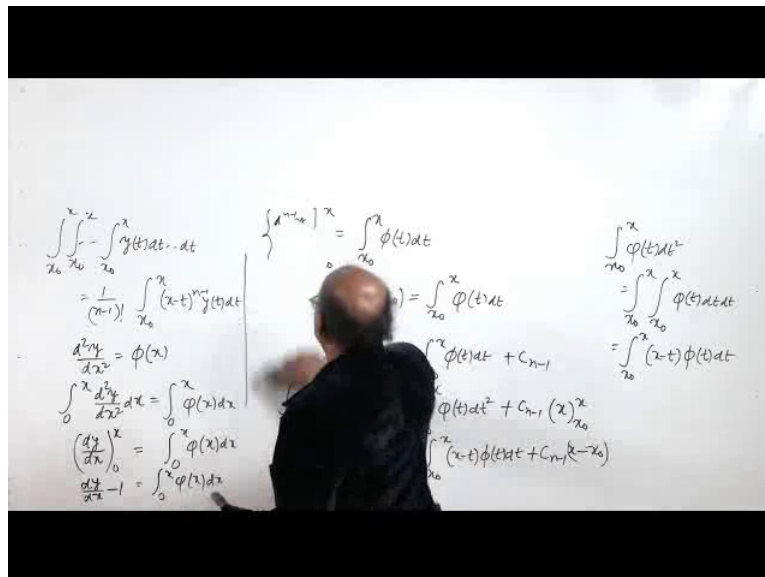 ∫_{x₀}^{x} ∫_{x₀}^{x} -- ∫_{x₀}^{x} y(t)dt..dt
= 1/(n-1)! ∫_{x₀}^{x} (x-t)^{n-1} y(t)dt
d²y/dx² = φ(x)
∫_{0}^{x} d²y/dx² dx = ∫_{0}^{x} φ(x)dx
(dy/dx)_{0}^{x} = ∫_{0}^{x} φ(x)dx
dy/dx - 1 = ∫_{0}^{x} φ(x)dx
= ∫_{x₀}^{x} φ(t)dt
) = ∫_{x₀}^{x} φ(t)dt
∫_{x₀}^{x} φ(t)dt + C_{n-1}
φ(t)dt² + C_{n-1} (x)_{x₀}^{x}
∫_{x₀}^{x} (x-t)φ(t)dt + C_{n-1}(x-x₀)
∫_{x₀}^{x} φ(t)dt²
= ∫_{x₀}^{x} ∫_{x₀}^{x} φ(t)dtdt
= ∫_{x₀}^{x} (x-t)φ(t)dt